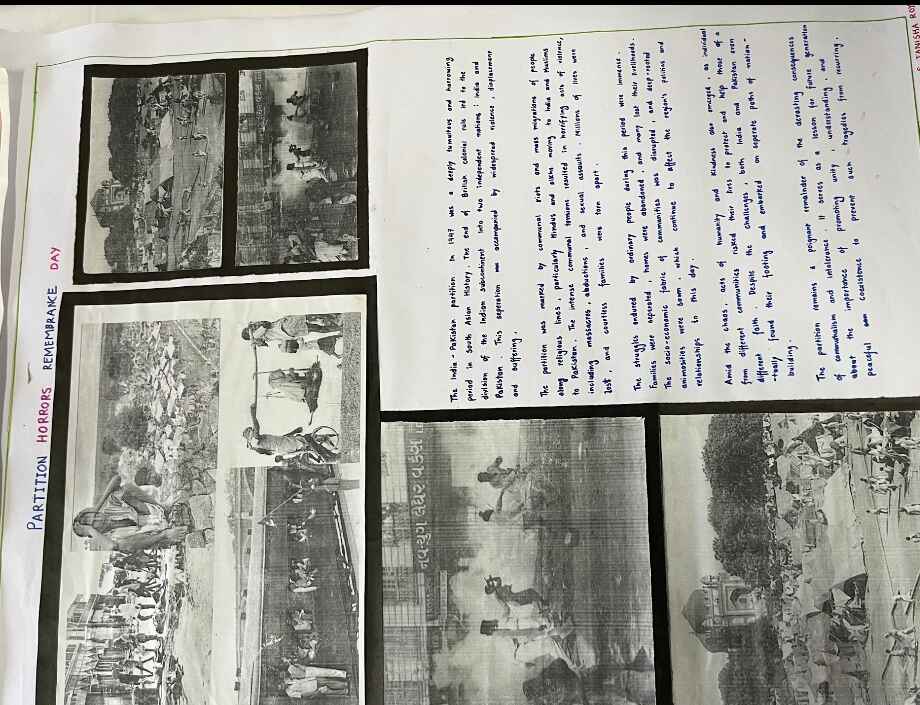 PARTITION HORRORS REMEMBRANCE DAY
The India - Pakistan partition in 1947 was a deeply tumutous and harrowing
period in South Asian History. The end of British colonial rule led to the
division of the Indian subcontinent into two independent nations : india and
Pakistan. This seperation was accompanied by widespread violence, displacement
and suffering.
The partition was marked by communal riots and mass migrations of people
along religious lines, particularly Hindus and sikhs moving to India and Muslims
to Pakistan. The intense communal tensions resulted in horrifying acts of violence,
including massacres, abductions and sexual assaults. Millions of lives were
lost, and countless families were torn apart.
The struggles endured by ordinary people during this period were immense.
Families were seperated, homes were abandoned, and many lost their livelihoods.
The socio-economic fabric of communities was disrupted, and deep-rooted
animosities were sown, which continue to affect the region's politics and
relationships to this day.
Amid the chaos, acts of humanity and kindness also emerged, as individual
from different communities risked their lives to protect and help those of a
different faith. Despite the challenges, both India and Pakistan even
-tually found their footing and embarked on seperate paths of nation-
building.
The partition remains a poignant remainder of the devasting consequences
of communalism and intolerence. It serves as a lesson for future generation
about the importance of promoting unity, understanding and
peaceful coexistence to prevent such tragedies from recurring.
નવયુગ લેધર વર્ક્સ
TANISHA ROY